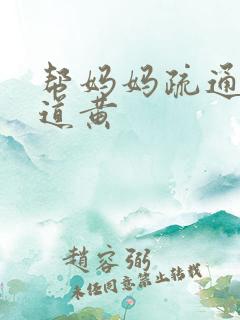 帮妈妈疏通
道黄
趙容弼
未经同意禁止转载